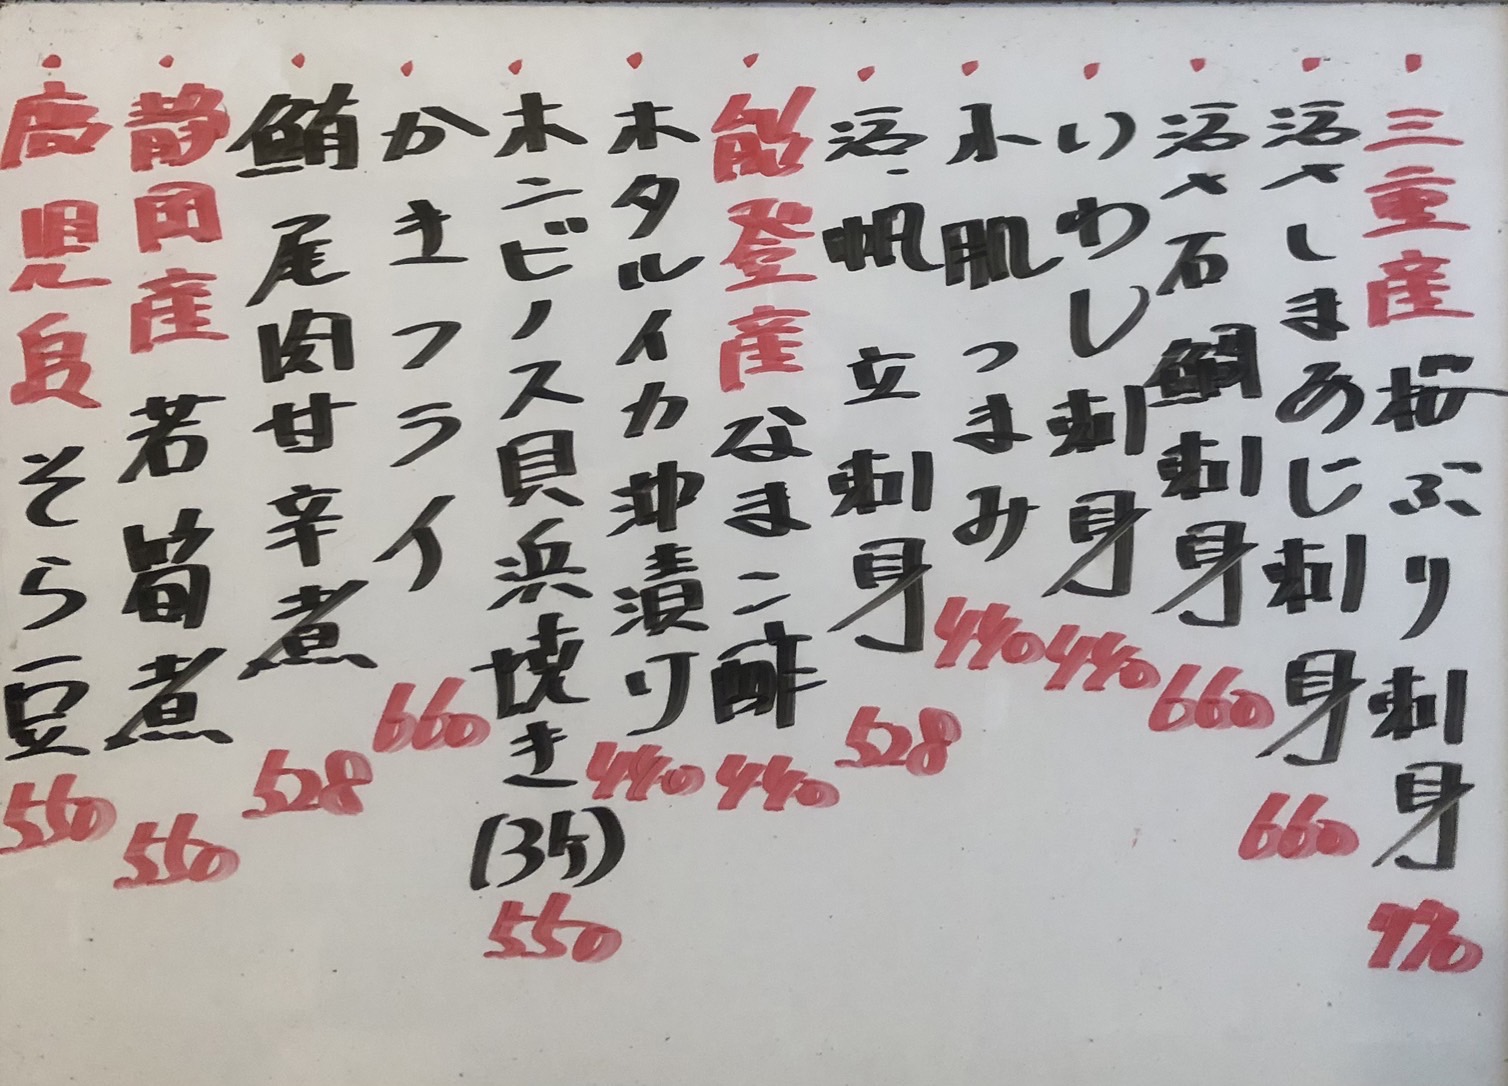 ・三重産桜ぶり刺身 770
・活〆しまあじ刺身 660
・活〆石鯛刺身 660
・いわし刺身 440
・小肌つまみ 440
・活帆立刺身 528
・能登産なまこ酢 440
・ホタルイカ沖漬り 440
・ホンビノス貝浜焼き(3ケ) 550
・かきフライ 660
・鮪尾肉甘辛煮 528
・静岡産若筍煮 550
・鹿児島そら豆 550